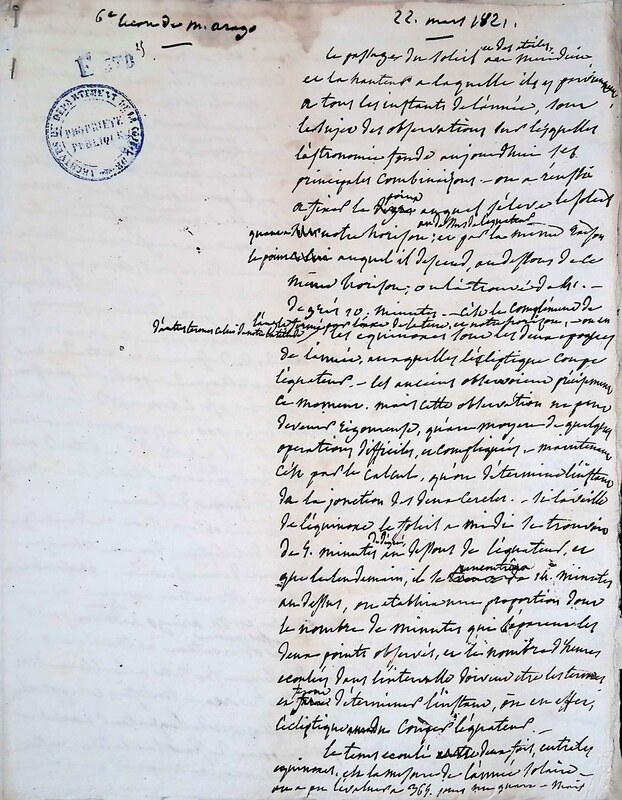 6e leçon de m. arago
22. mars 1821.
E 378 5)
ARCHIVES DU DÉPARTEMENT DE LA CÔTE-D'OR
PROPRIÉTÉ
PUBLIQUE
le passage du soleil et des étoiles au méridien
et la hauteur à laquelle ils y parviennent
a tous les instants de l'année, sont
le sujet des observations sur lesquelles
l'astronomie fonde aujourdhui ses
principales combinaisons. - on a
a fixer le point auquel s'élève le soleil
quand notre horison; au dessus de l'équateur et par la même raison
le point auquel il descend, au dessous de ce
même horison; on l'a trouvé de
degrés 10. minutes. - C'est le complément de
l'angle formé par l'axe de la terre, et notre horison, - on
d'autres termes celui de notre latitude
les équinoxes sont les deux époques
de l'année, auxquelles l'écliptique coupe
l'équateur. - les anciens observoient précisément
ce moment. mais cette observation ne peut
devenir rigoureuse, qu'au moyen de quelques
opérations difficiles, et compliquées. - maintenant
c'est par le calcul, qu'on détermine l'instant
de la jonction des deux cercles. - si la veille
de l'équinoxe le soleil a midi se trouvoit
de 9. minutes de degré en dessous de l'équateur, et
que le lendemain, il se rencontra de 14. minutes
au dessus, on établit une proportion dont
le nombre de minutes qui séparent les
deux points observés, et le nombre d'heures
ecoulées dans l'intervalle doivent être les termes
et déterminer l'instant, où en effet,
l'écliptique a du couper l'équateur. -
le tems ecoulé deux fois, entre les
equinoxes, est la mesure de l'année solaire -
on a pu l'évaluer a 365 jours un quart - mais